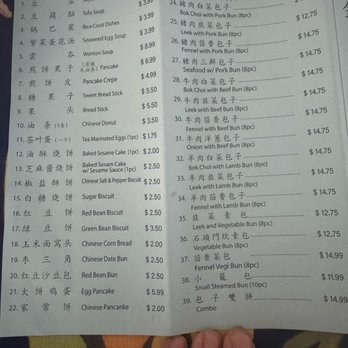 2. 豆 腐 腦 Tofu Soup $ 3.50
3. 锅 巴 菜 Rice Crust Dishes $ 3.50
4. 紫菜蛋花汤 Seaweed Egg Soup $ 3.99
5. 雲 吞 Wonton Soup $ 8.99
6. 煎饼果子 Pancake $ 6.99
7. 煎 饼 皮 Pancake Crepe $ 4.99
8. 糖 果 子 Sweet Bread Stick $ 5.50
9. 果 头 Bread Stick $ 5.50
10. 油 条 (1条) Chinese Donut $ 3.50
11. 茶叶蛋 (一个) Tea Marinated Eggs (1pc) $ 1.75
12. 油 酥 烧 饼 Baked Sesame Cake (1pc) $ 2.00
13. 芝麻酱烧饼 Baked Sesam Cake w/ Sesame Sauce (1pc) $ 2.50
14. 椒 盐 酥 饼 Chinese Salt & Pepper Biscuit $ 2.50
15. 白 糖 烧 饼 Sugar Biscuit $ 2.50
16. 红 豆 饼 Red Bean Biscuit $ 2.50
17. 绿 豆 饼 Green Bean Biscuit $ 3.50
18. 玉米面窝头 Chinese Corn Bread $ 2.00
19. 枣 三 角 Chinese Date Bun $ 2.50
20. 红豆沙豆包 Red Bean Bun $ 2.50
21. 大 饼 鸡 蛋 Egg Pancake $ 5.99
22. 家 常 饼 Chinese Pancanke $ 2.00
24. 豬肉白菜包子 $ 12.75
Bok Choi with Pork Bun (8pc)
25. 豬肉韭菜包子 $ 12.75
Leek with Pork Bun (8pc)
26. 豬肉茴香包子 $ 14.75
Fennel with Pork Bun (8pc)
27. 豬肉三鮮包子 $ 14.75
Seafood w/ Pork Bun (8pc)
28. 牛肉白菜包子 $ 14.75
Bok Choi with Beef Bun (8pc)
29. 牛肉韭菜包子 $ 14.75
Leek with Beef Bun (8pc)
30. 牛肉茴香包子 $ 14.75
Fennel with Beef Bun (8pc)
31. 牛肉洋葱包子 $ 14.75
Onion with Beef Bun (8pc)
32. 羊肉白菜包子 $ 14.75
Bok Choi with Lamb Bun (8pc)
33. 羊肉韭菜包子 $ 14.75
Leek with Lamb Bun (8pc)
34. 羊肉茴香包子 $ 14.75
Fennel with Lamb Bun (8pc)
35. 韭 菜 素 包 $ 12.75
Leek and Vegetable Bun (8pc)
36. 石頭門坎素包 $ 12.75
Vegetable Bun (8pc)
37. 茴香菜包 $ 14.99
Fennel Vegi Bun (8pc)
38. 小 籠 包 $ 11.99
Small Steamed Bun (10pc)
39. 包 子 雙 拼 $ 14.99
Combo